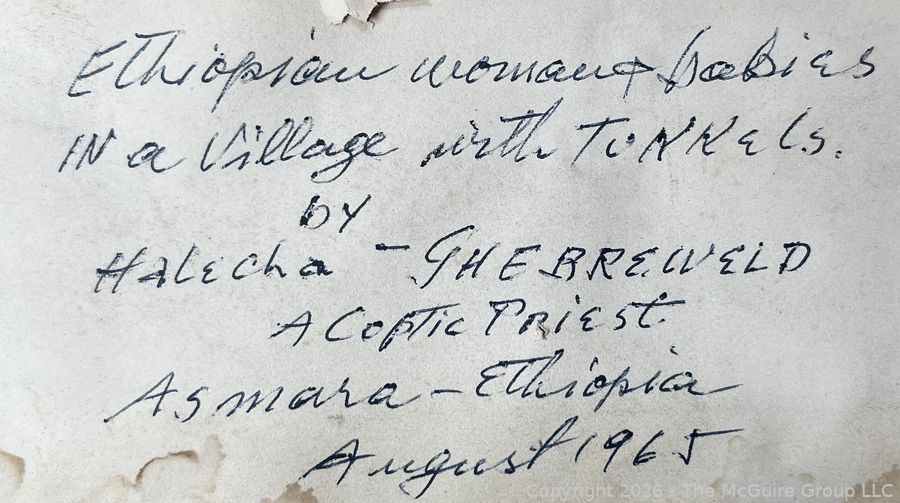 Ethiopian woman + babies
IN a Village with TUNNELS.
by
Halecha - GHEBREWELD
A Coptic Priest.
Asmara - Ethiopia
August 1965
Copyright 2026 - The McGuire Group LLC